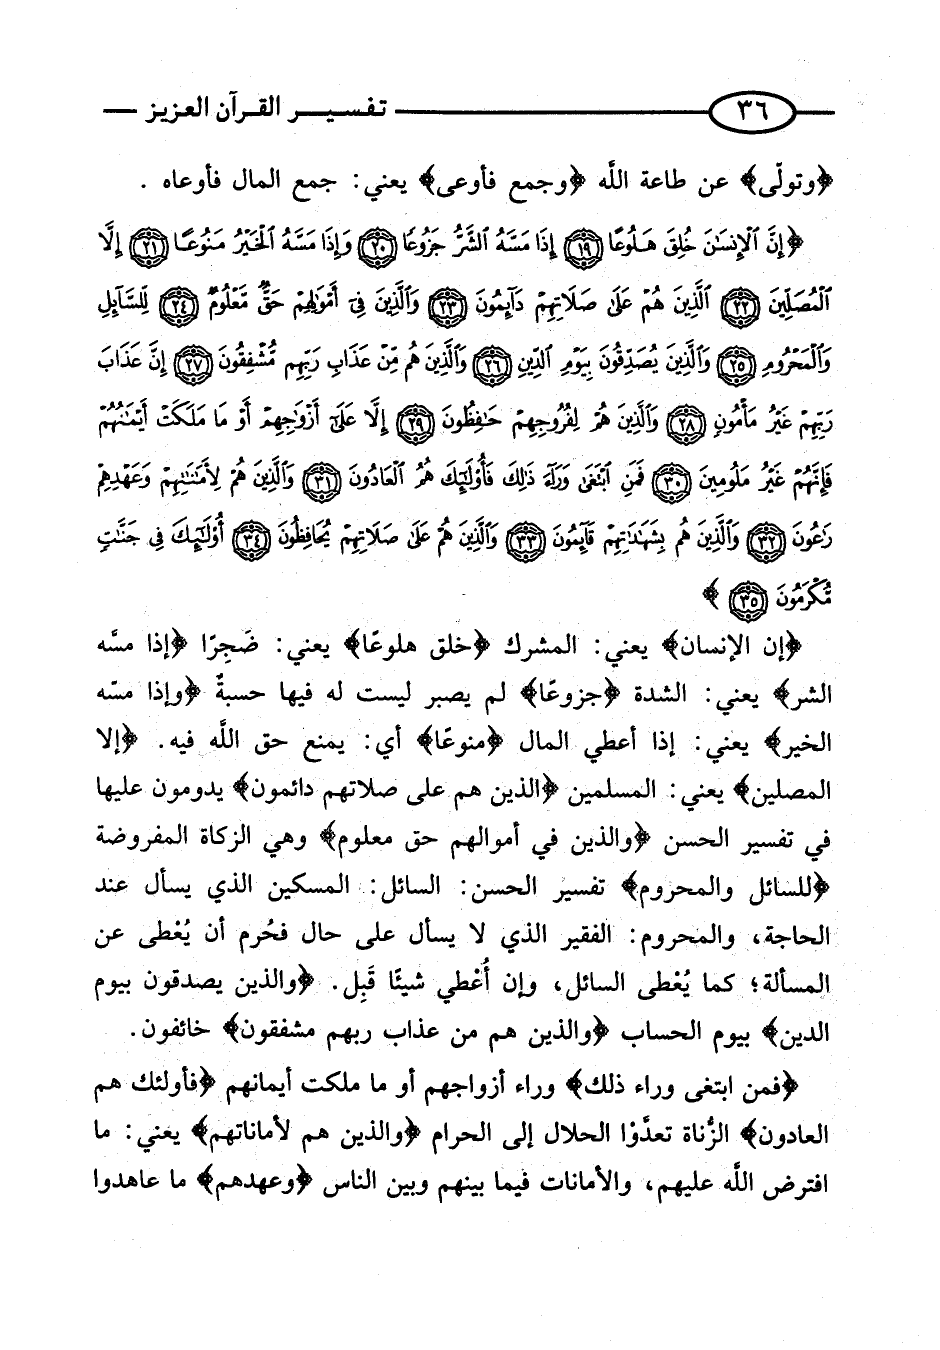 ٣٦ تفسير القرآن العزيز
﴿وتولّى﴾ عن طاعة اللَّه ﴿وجمع فأوعى﴾ يعني: جمع المال فأوعاه .
﴿إِنَّ ٱلْإِنسَٰنَ خُلِقَ هَلُوعًا ١٩ إِذَا مَسَّهُ ٱلشَّرُّ جَزُوعًا ٢٠ وَإِذَا مَسَّهُ ٱلْخَيْرُ مَنُوعًا ٢١ إِلَّا
ٱلْمُصَلِّينَ ٢٢ ٱلَّذِينَ هُمْ عَلَىٰ صَلَاتِهِمْ دَآئِمُونَ ٢٣ وَٱلَّذِينَ فِىٓ أَمْوَٰلِهِمْ حَقٌّ مَّعْلُومٌ ٢٤ لِّلسَّآئِلِ
وَٱلْمَحْرُومِ ٢٥ وَٱلَّذِينَ يُصَدِّقُونَ بِيَوْمِ ٱلدِّينِ ٢٦ وَٱلَّذِينَ هُم مِّنْ عَذَابِ رَبِّهِم مُّشْفِقُونَ ٢٧ إِنَّ عَذَابَ
رَبِّهِمْ غَيْرُ مَأْمُونٍ ٢٨ وَٱلَّذِينَ هُمْ لِفُرُوجِهِمْ حَٰفِظُونَ ٢٩ إِلَّا عَلَىٰٓ أَزْوَٰجِهِمْ أَوْ مَا مَلَكَتْ أَيْمَٰنُهُمْ
فَإِنَّهُمْ غَيْرُ مَلُومِينَ ٣٠ فَمَنِ ٱبْتَغَىٰ وَرَآءَ ذَٰلِكَ فَأُوْلَٰٓئِكَ هُمُ ٱلْعَادُونَ ٣١ وَٱلَّذِينَ هُمْ لِأَمَٰنَٰتِهِمْ وَعَهْدِهِمْ
رَٰعُونَ ٣٢ وَٱلَّذِينَ هُم بِشَهَٰدَٰتِهِمْ قَآئِمُونَ ٣٣ وَٱلَّذِينَ هُمْ عَلَىٰ صَلَاتِهِمْ يُحَافِظُونَ ٣٤ أُوْلَٰٓئِكَ فِى جَنَّٰتٍ
مُّكْرَمُونَ ٣٥ ﴾
﴿إن الإنسان﴾ يعني: المشرك ﴿خلق هلوعًا﴾ يعني: ضَجِرًا ﴿إذا مسَّه
الشر﴾ يعني: الشدة ﴿جزوعًا﴾ لم يصبر ليست له فيها حسبةٌ ﴿وإذا مسّه
الخير﴾ يعني: إذا أعطي المال ﴿منوعًا﴾ أي: يمنع حق اللَّه فيه. ﴿إلا
المصلين﴾ يعني: المسلمين ﴿الذين هم على صلاتهم دائمون﴾ يدومون عليها
في تفسير الحسن ﴿والذين في أموالهم حق معلوم﴾ وهي الزكاة المفروضة
﴿للسائل والمحروم﴾ تفسير الحسن: السائل: المسكين الذي يسأل عند
الحاجة، والمحروم: الفقير الذي لا يسأل على حال فحُرم أن يُعْطى عن
المسألة؛ كما يُعْطى السائل، وإن أُعْطي شيئًا قَبِل. ﴿والذين يصدقون بيوم
الدين﴾ بيوم الحساب ﴿والذين هم من عذاب ربهم مشفقون﴾ خائفون.
﴿فمن ابتغى وراء ذلك﴾ وراء أزواجهم أو ما ملكت أيمانهم ﴿فأولئك هم
العادون﴾ الزُّناة تعدَّوْا الحلال إلى الحرام ﴿والذين هم لأماناتهم﴾ يعني: ما
افترض اللَّه عليهم، والأمانات فيما بينهم وبين الناس ﴿وعهدهم﴾ ما عاهدوا